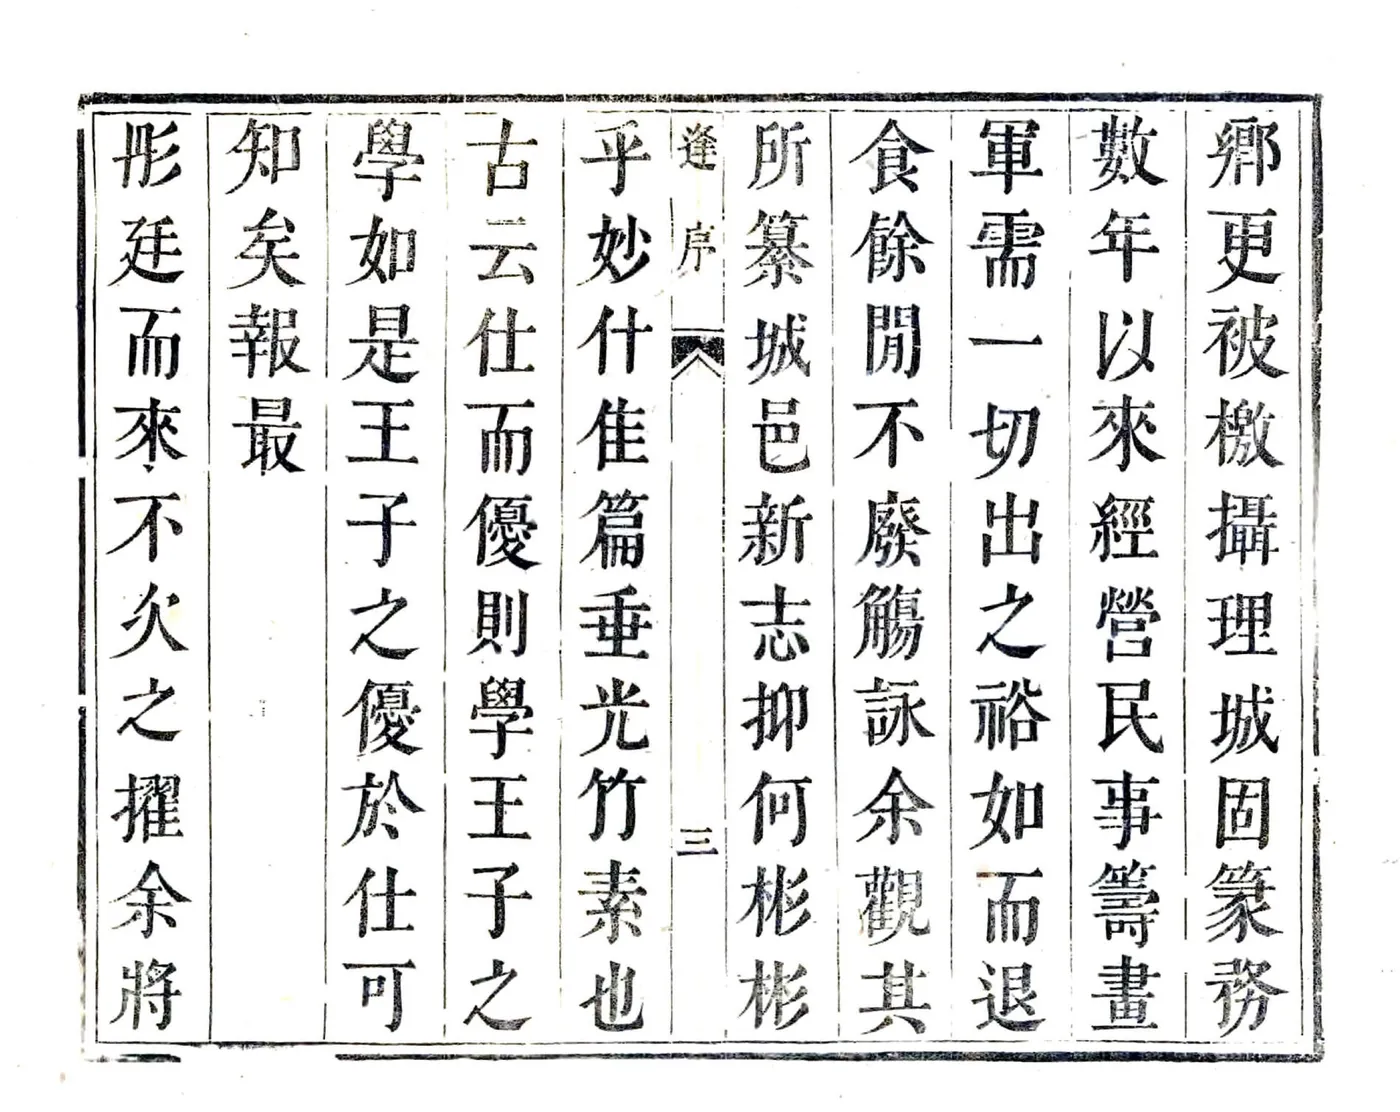 鄉更被檄攝理城固篆務
數年以來經營民事籌畫
軍需一切出之裕如而退
食餘閒不廢觴詠余觀其
所纂城邑新志抑何彬彬
逢序 三
乎妙什佳篇垂光竹素也
古云仕而優則學王子之
學如是王子之優於仕可
知矣報最
彤廷而來不久之擢余將